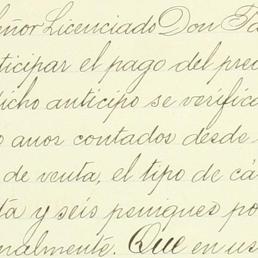 eñor Licenciado Don Fa
ticipar el pago del prec
icho anticipo se verific
o anos contados desde
de venta, el tipo de cá
ta y seis peniques po
nalmente. Que en us